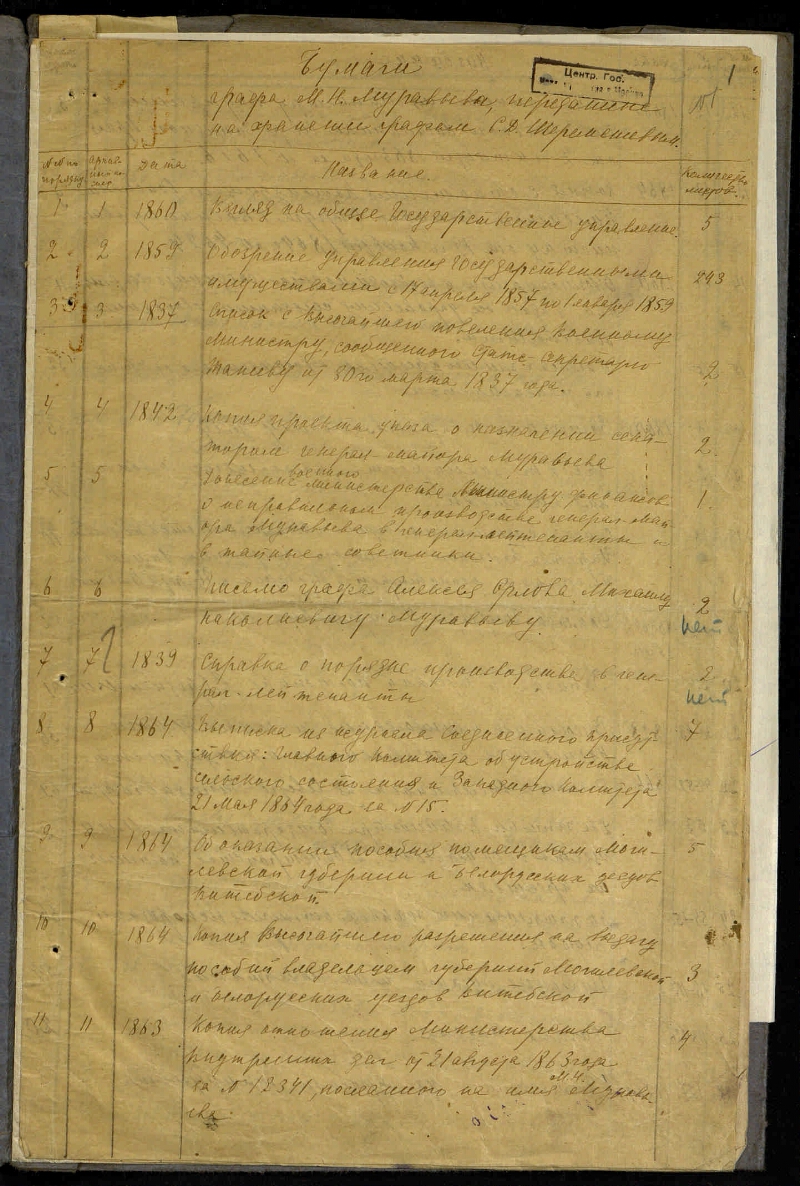 Бумаги
графа М.Н. Муравьева, переданные
на хранение графом С.Д. Шереметевым.
Центр. Гос.
1
№1
№№ по порядку
дата
Название.
Количество листов.
1 1 1860 Взгляд на общее Государственное управление. 5
2 2 1859 Обозрение управления Государственными 243
имуществами с 17 апреля 1857 по 1 января 1859
3 3 1837 Список с Высочайшего повеления Военному
Министру, сообщенного Статс-Секретарю
от 30го марта 1837 года. 2
4 4 1842 Копия проекта указа о назначении сена-
тором генерал-майора Муравьева 2.
5 5 Донесение военного министерства Министру финансов 1.
о неправильном производстве генерал-май-
ора Муравьева в генерал-лейтенанты и
в тайные советники.
6 6 Письмо графа Алексея Орлова Михаилу 2
Николаевичу Муравьеву. нет
7 7 1839 Справка о порядке производства в гене- 2
рал-лейтенанты нет
8 8 1864 Выписка из журнала Соединенного присут- 7
ствия: Главного Комитета об устройстве
сельского состояния и Западного Комитета
21 мая 1864 года за №15.
9 9 1864 Об оказании пособия помещикам Моги- 5
левской губернии и белорусских уездов
Витебской.
10 10 1864 Копия Высочайшего разрешения на выдачу
пособий владельцам губерний Могилевской 3
и белорусских уездов Витебской
11 11 1863 Копия отношения Министерства 4
внутренних дел от 21 августа 1863 года
за №12341, посланного на имя М.Н. Муравь-
ева.